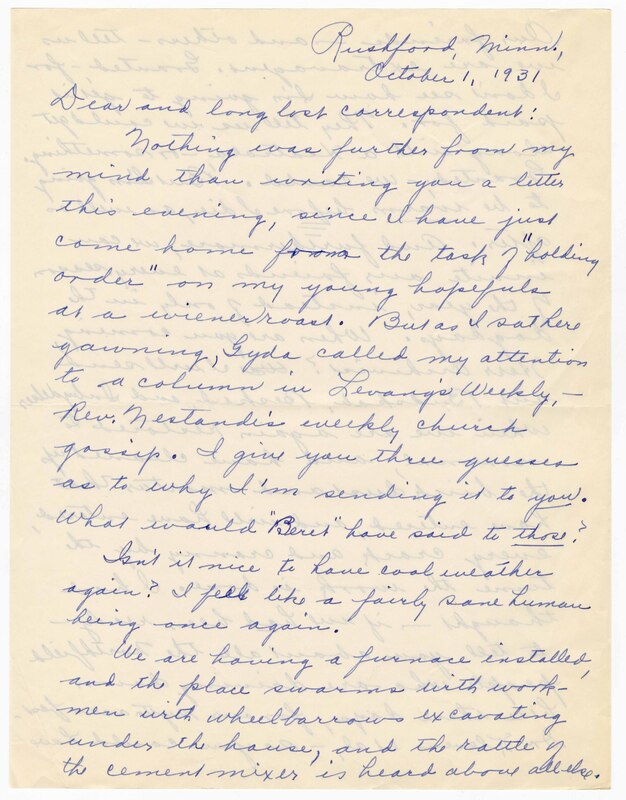 Rushford, Minn.,
October 1, 1931
Dear and long lost correspondent:
Nothing was further from my
mind than writing you a letter
this evening, since I have just
come home from the task of "holding
order" on my young hopefuls
at a wiener roast. But as I sat here
yawning, Gyda called my attention
to a column in Levang's Weekly, —
Rev. Nestande's weekly church
gossip. I give you three guesses
as to why I'm sending it to you.
What would "Beret" have said to those?
Isn't it nice to have cool weather
again? I feel like a fairly sane human
being once again.
We are having a furnace installed,
and the place swarms with work-
men with wheelbarrows excavating
under the house, and the rattle of
the cement mixer is heard above all else.